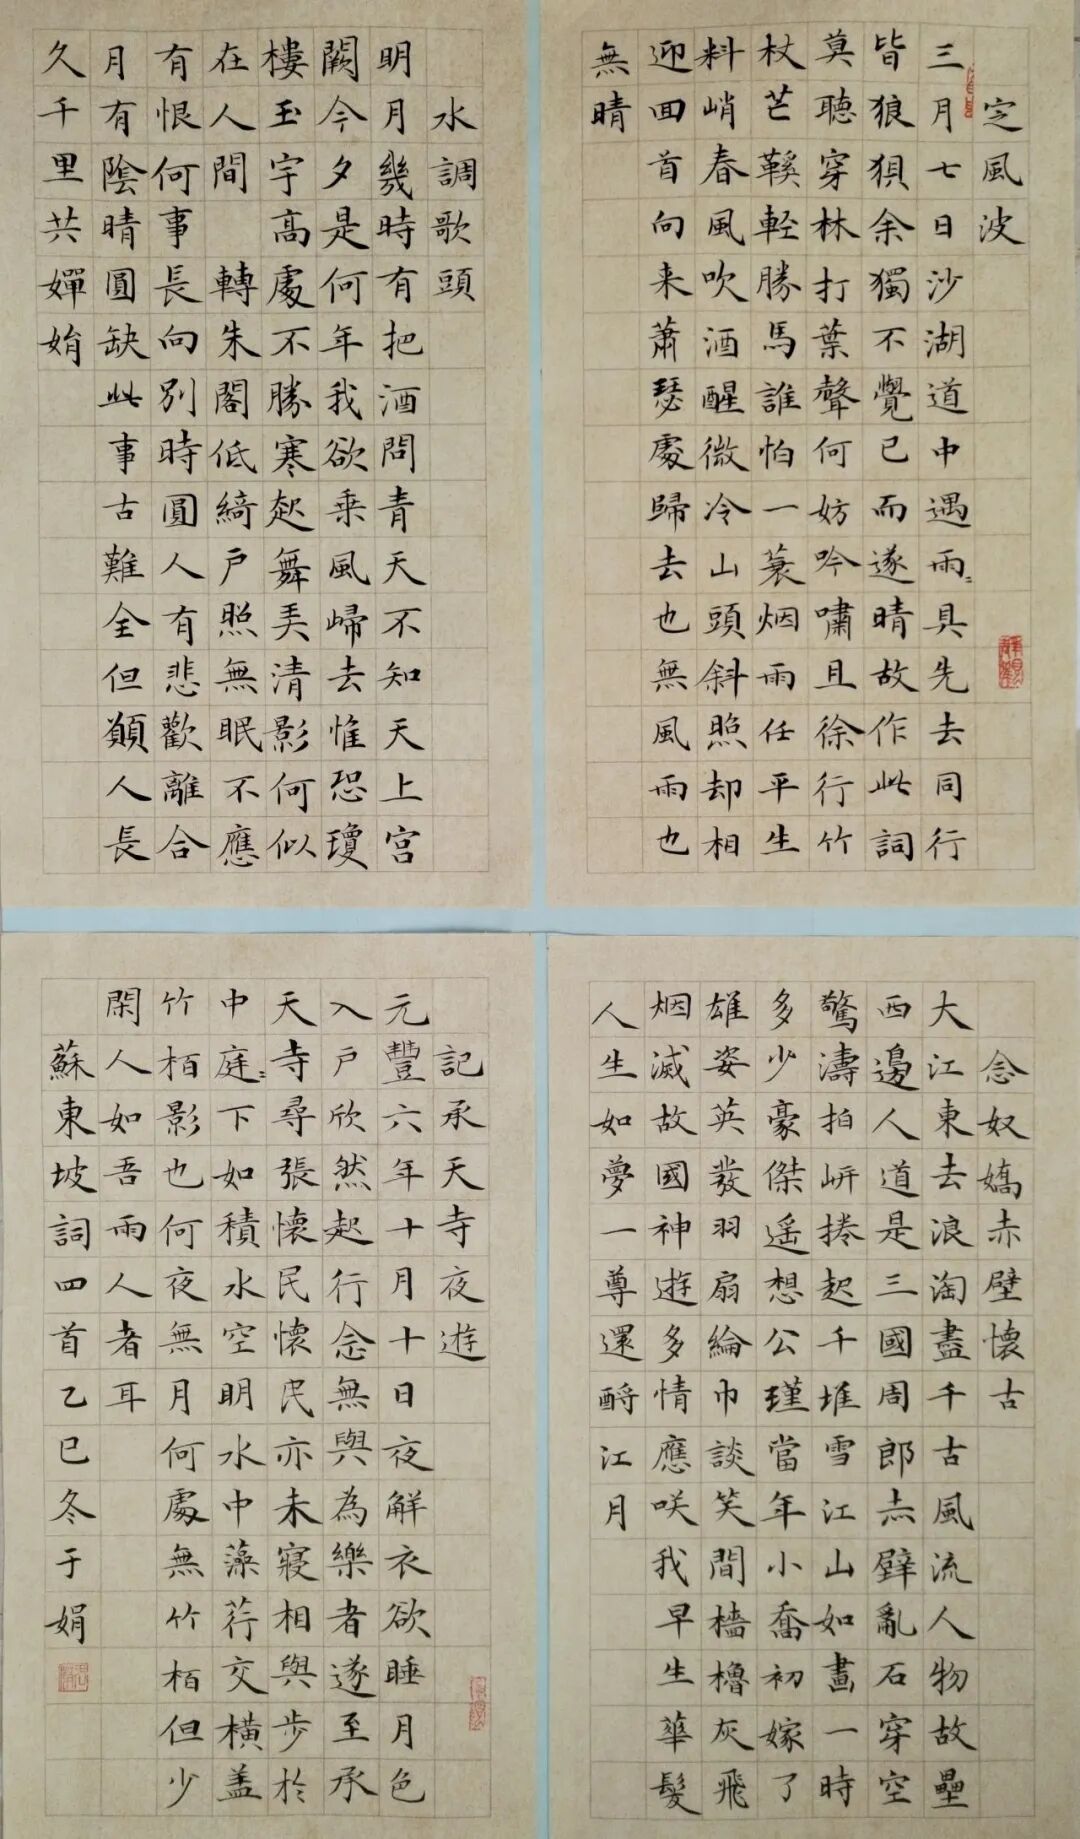 定風波
三月七日沙湖道中遇雨〻具先去同行
皆狼狽余獨不覺已而遂晴故作此詞
莫聽穿林打葉聲何妨吟嘯且徐行竹
杖芒鞵軽勝馬誰怕一蓑烟雨任平生
料峭春風吹酒醒微冷山頭斜照却相
迎回首向来蕭瑟處歸去也無風雨也
無晴
水調歌頭
明月幾時有把酒問青天不知天上宮
闕今夕是何年我欲乗風歸去惟恐瓊
樓玉宇高處不勝寒起舞弄清影何似
在人間 轉朱閣低綺户照無眠不應
有恨何事長向別時圓人有悲歡離合
月有陰晴圓缺此事古難全但願人長
久千里共嬋娟
念奴嬌赤壁懷古
大江東去浪淘盡千古風流人物故壘
西邊人道是三國周郎赤壁亂石穿空
驚濤拍岍捲起千堆雪江山如畫一時
多少豪傑遥想公瑾當年小喬初嫁了
雄姿英發羽扇綸巾談笑間檣櫓灰飛
烟滅故國神遊多情應咲我早生華髮
人生如夢一尊還酹江月
記承天寺夜遊
元豐六年十月十日夜解衣欲睡月色
入户欣然起行念無與為樂者遂至承
天寺尋張懷民懷民亦未寢相與步於
中庭〻下如積水空明水中藻荇交橫盖
竹栢影也何夜無月何處無竹栢但少
閑人如吾兩人者耳
蘇東坡詞四首乙巳冬于娟